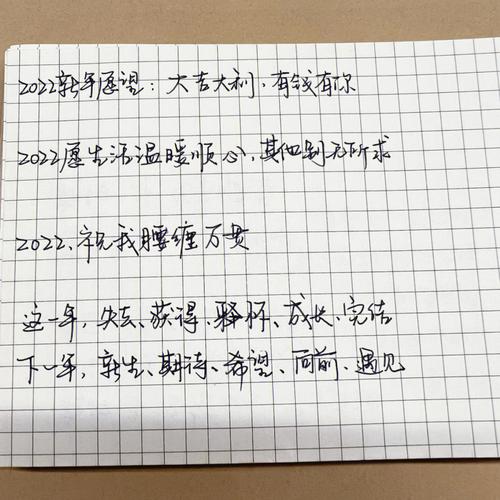 2022新年愿望：大吉大利，有钱有你
2022愿生活温暖顺心，其他别无所求
2022、祝我腰缠万贯
这一年，失去、获得、释怀、成长、完结
下一年，新生、期待、希望、向前、遇见